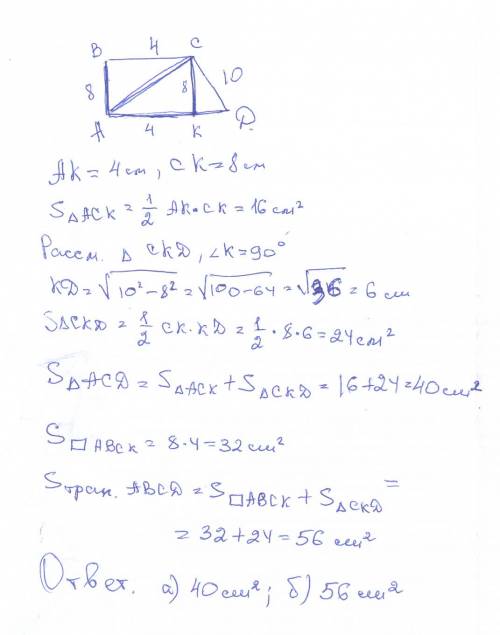 B 4 C
8 8 10
A 4 K D
AK = 4 см, CK = 8 см
S△ACK = 1/2 AK·CK = 16 см²
Рассм. △ CKD, ∠K = 90°
KD = √10²-8² = √100-64 = √36 = 6 см
S△CKD = 1/2 CK·KD = 1/2 · 8·6 = 24 см²
S△ACD = S△ACK + S△CKD = 16+24=40 см²
S□ABCK = 8·4 = 32 см²
Sтрап. ABCD = S□ABCK + S△CKD =
= 32+24 = 56 см²
Ответ. а) 40 см²; б) 56 см²